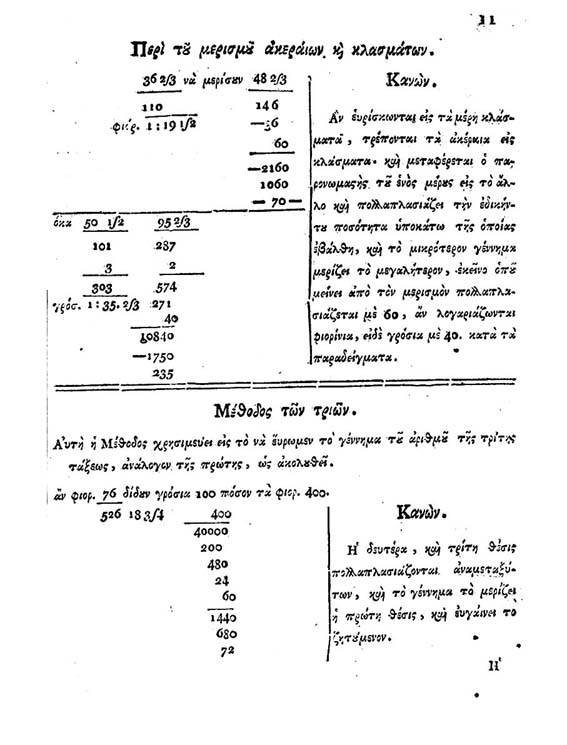 11
Περὶ τοῦ μερισμοῦ ἀκεραίων κ̣ κλασμάτων.
36 2/3 νὰ μερίσουν 48 2/3
110 146
φιόρ. 1:19 1/2 —36
60
—2160
1060
— 70 —
ὀκα 50 1/2 95 2/3
101 287
3 2
303 574
γρόσ. 1:35. 2/3 271
40
10840
—1750
235
Κανών.
Ἂν εὑρίσκωνται εἰς τὰ μέρη κλάσ-
ματα, τρέπονται τὰ ἀκέραια εἰς
κλάσματα· καὶ μεταφέρεται ὁ πα-
ρονωμαςὴς τοῦ ἑνὸς μέρους εἰς τὸ ἄλ-
λο καὶ πολλαπλασιάζει τὴν ἐδικήν-
του ποσότητα ὑποκάτω τῆς ὁποίας
ἐβάλθη, καὶ τὸ μικρότερον γέννημα
μερίζει τὸ μεγαλήτερον, ἐκεῖνο ὁποῦ
μείνει ἀπὸ τὸν μερισμὸν πολλαπλα-
σιάζεται μὲ 60, ἂν λογαριάζωνται
φιορίνια, εἰδὲ γρόσια μὲ 40. κατὰ τὰ
παραδείγματα.
Μέθοδος τῶν τριῶν.
Αὐτὴ ἡ Μέθοδος χρησιμεύει εἰς τὸ νὰ εὕρωμεν τὸ γέννημα τοῦ ἀριθμοῦ τῆς τρίτης
τάξεως, ἀνάλογον τῆς πρώτης, ὡς ἀκολουθεῖ.
ἂν φιορ. 76 δίδουν γρόσια 100 πόσον τὰ φιορ. 400.
526 18 3/4 400
40000
200
480
24
60
1440
680
72
Κανών.
Ἡ δευτέρα, καὶ τρίτη θέσις
πολλαπλασιάζονται ἀναμεταξύ-
των, καὶ τὸ γέννημα τὸ μερίζει
ἡ πρώτη θέσις, καὶ εὐγαίνει τὸ
ζητούμενον.
Ἡ